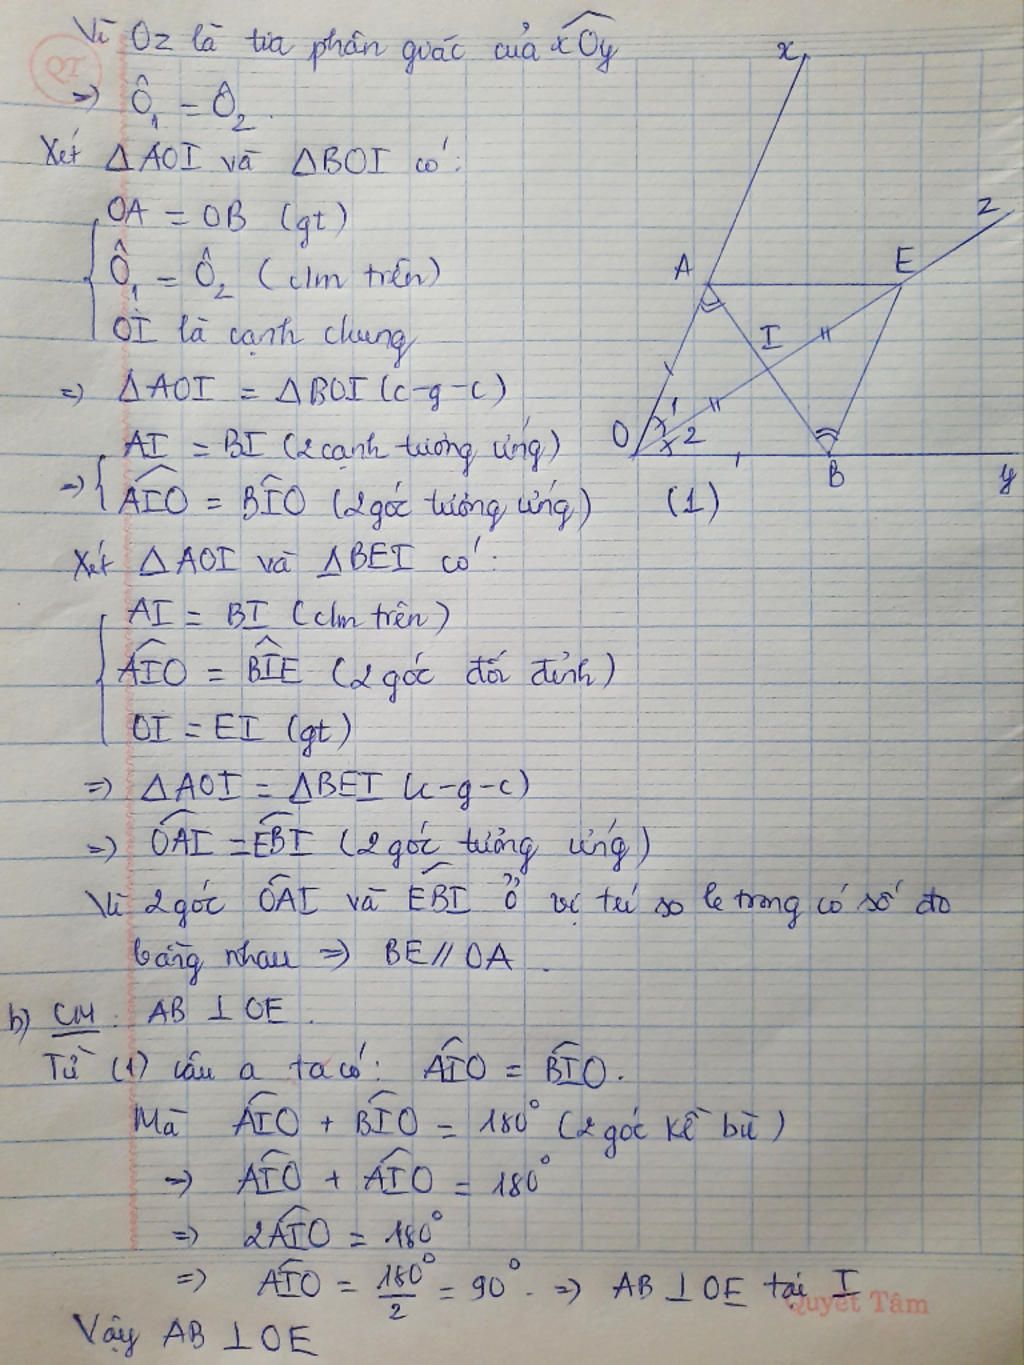 Vì Oz là tia phân giác của xÔy
=> Ô₁ = Ô₂.
Xét △AOI và △BOI có:
OA = OB (gt)
Ô₁ = Ô₂ (clm trên)
OI là cạnh chung
=> △AOI = △BOI (c-g-c)
=> AI = BI (2 cạnh tương ứng)
AÎO = BÎO (2 góc tương ứng) (1)
Xét △AOI và △BEI có:
AI = BI (clm trên)
AÎO = BÎE (2 góc đối đỉnh)
OI = EI (gt)
=> △AOI = △BEI (c-g-c)
=> OÂI = EB̂I (2 góc tưởng ứng)
Vì 2 góc OÂI và EB̂I ở vị trí so le trong có số đo
bằng nhau => BE // OA.
b) CM: AB ⊥ OE.
Từ (1) câu a ta có: AÎO = BÎO.
Mà AÎO + BÎO = 180° (2 góc kề bù)
=> AÎO + AÎO = 180°
=> 2AÎO = 180°
=> AÎO = 180°/2 = 90°. => AB ⊥ OE tại I
Vậy AB ⊥ OE
x
z
A
E
I
O
1
2
B
y
QT
Quyết Tâm